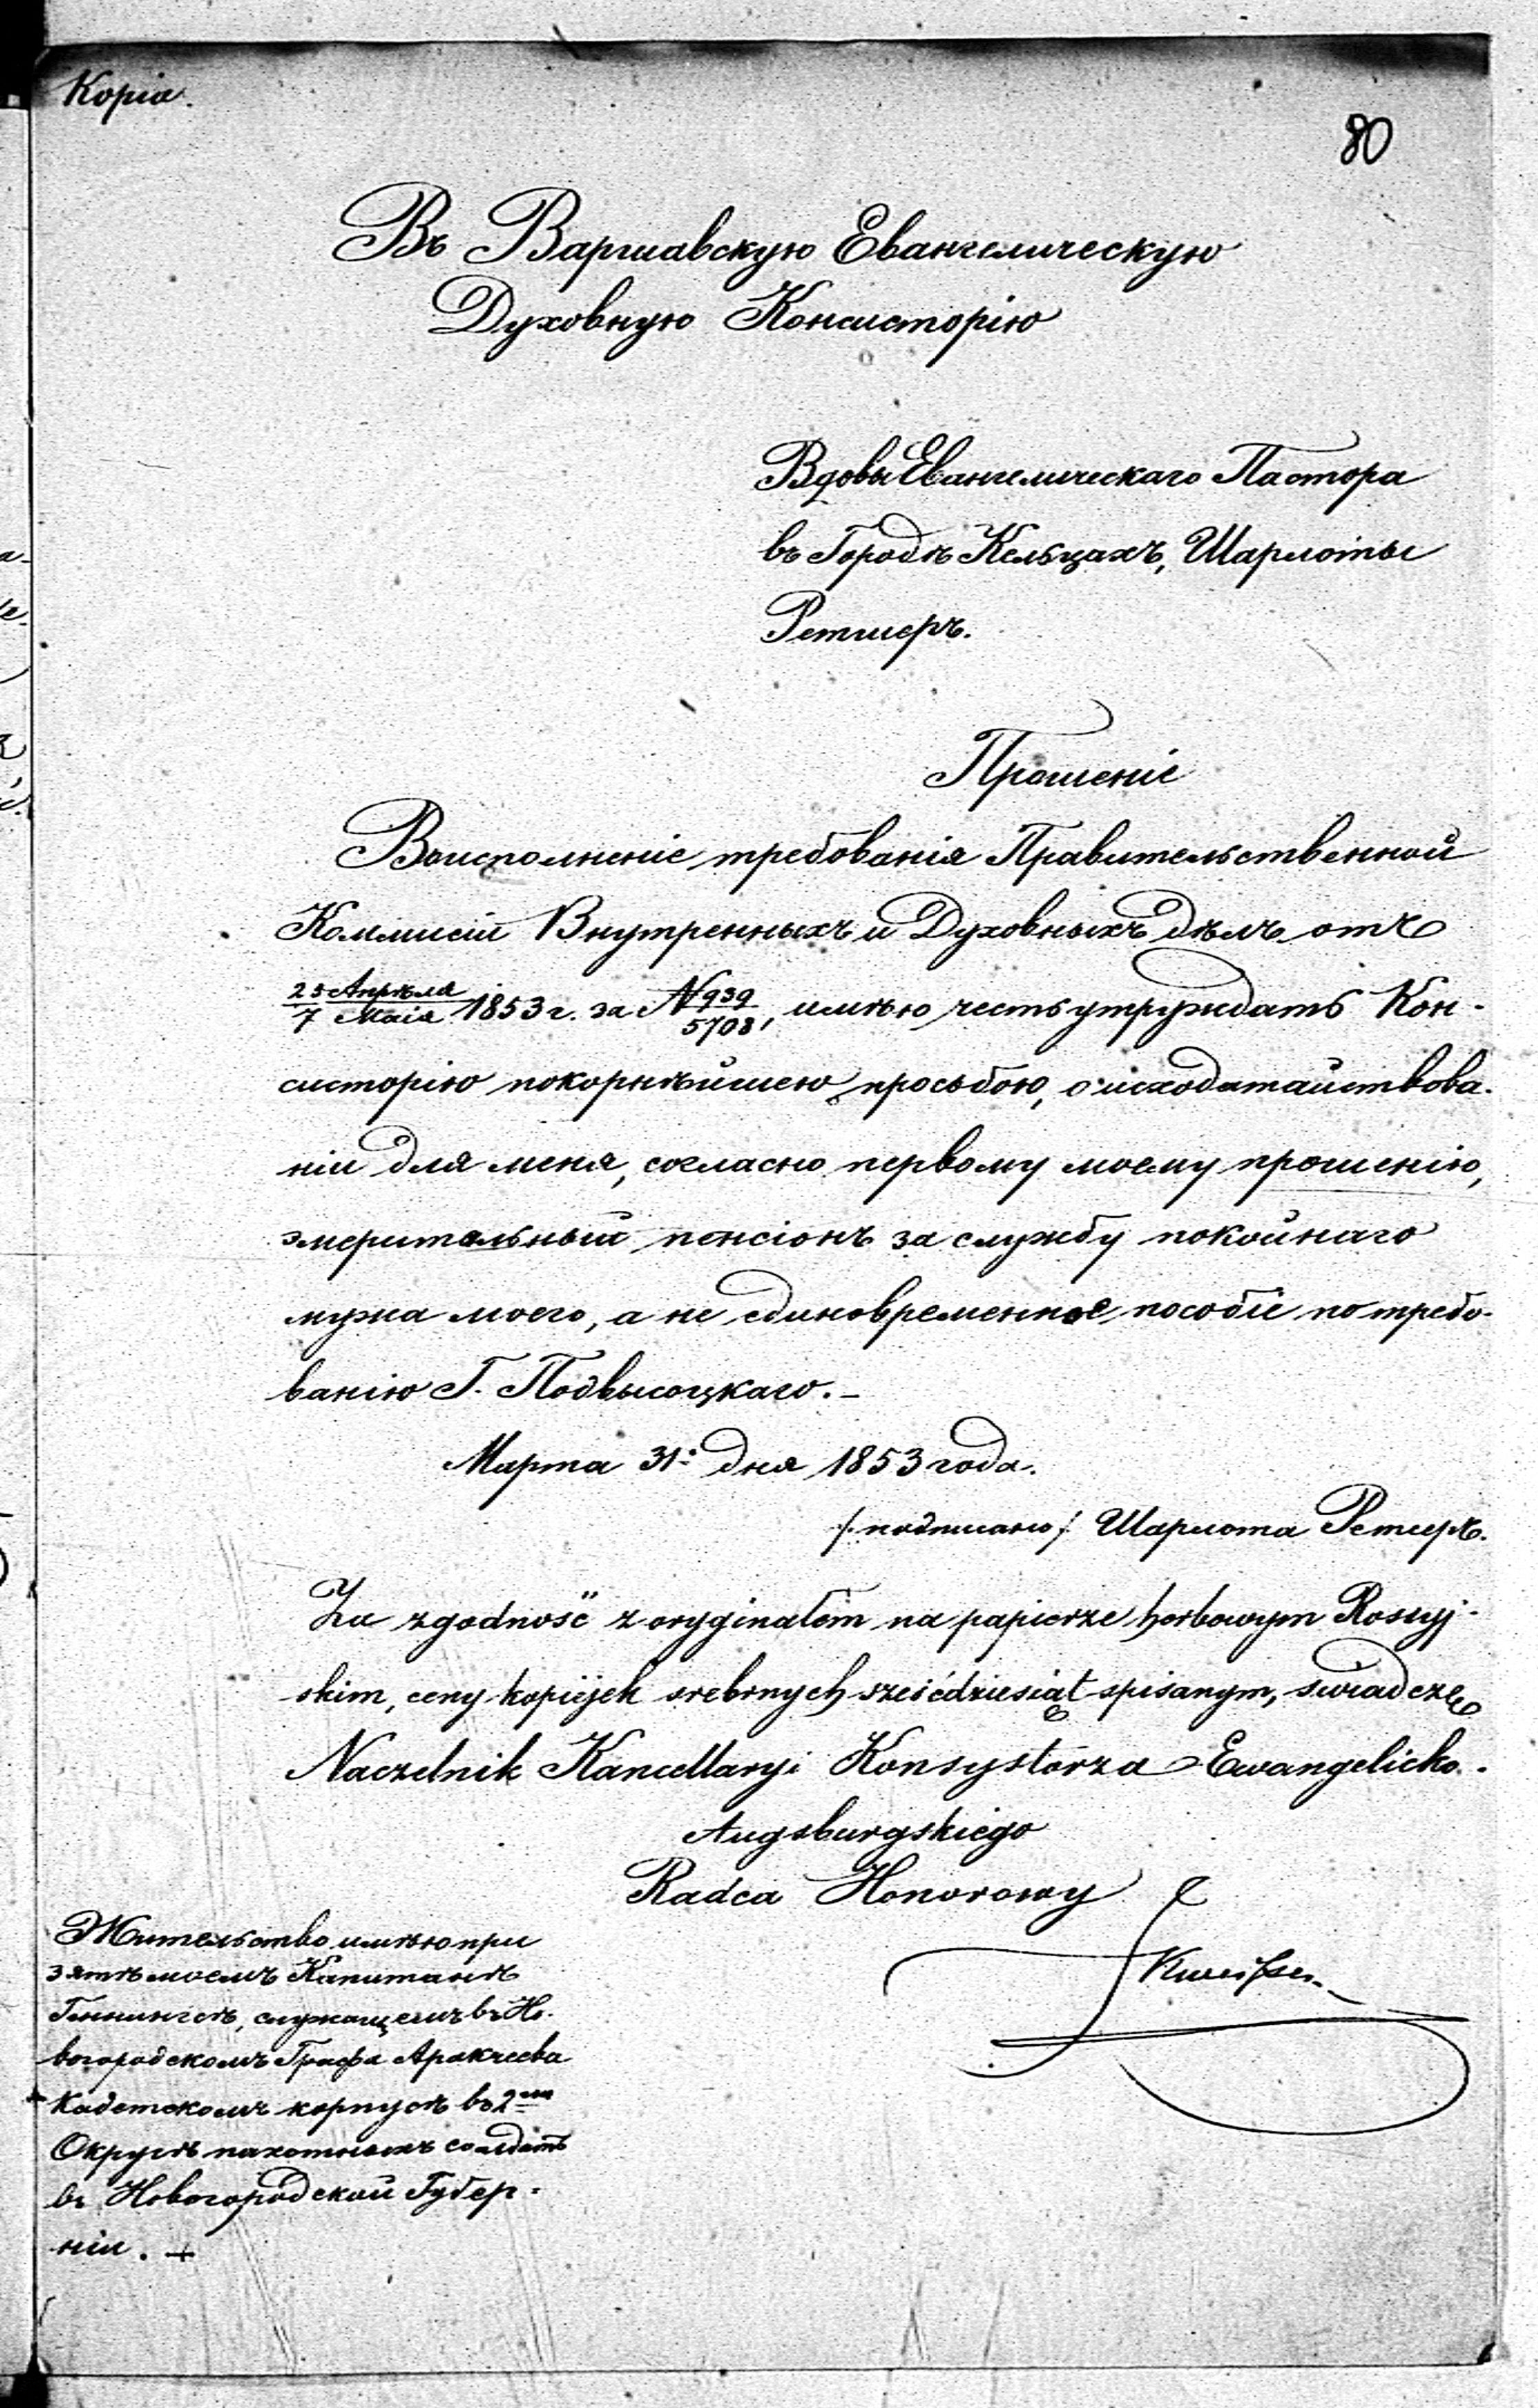 Копіа.
80
Въ Варшавскую Евангелическую
Духовную Консисторію
Вдовы Евангелическаго Пастора
въ Городѣ Кельцахъ, Шарлоты
Ретшеръ.
Прошеніе
Воисполненіе требованія Правительственной
Коммисіи Внутренныхъ и Духовныхъ дѣлъ отъ
25 Апрѣля / 7 Маія 1853 г. за N 939/5708, имѣю честь утруждать Кон-
систорію покорнѣйшею просьбою, о исходатайствова-
ніи для меня, согласно первому моему прошенію,
эмеритальный пенсіонъ за службу покойнаго
мужа моего, а не единовременное пособіе по требо-
ванію Г. Подвысоцкаго. –
Марта 31: дня 1853 года.
/подписано/ Шарлота Ретшеръ.
Za zgodność z oryginałem na papierze herbowym Rossyj-
skim, ceny kopijek srebrnych sześćdziesiąt spisanym, świadczę
Naczelnik Kancellaryi Konsystorza Ewangelicko-
Augsburgskiego
Radca Honorowy
Жительство имѣю при
зятѣ моемъ Капитанѣ
Геннингсѣ, служащемъ въ Но-
вогородскомъ Графа Аракчеева
Кадетскомъ корпусѣ въ 2мъ
Округѣ пахотныхъ солдатъ
въ Новогородской Губер-
ніи. +